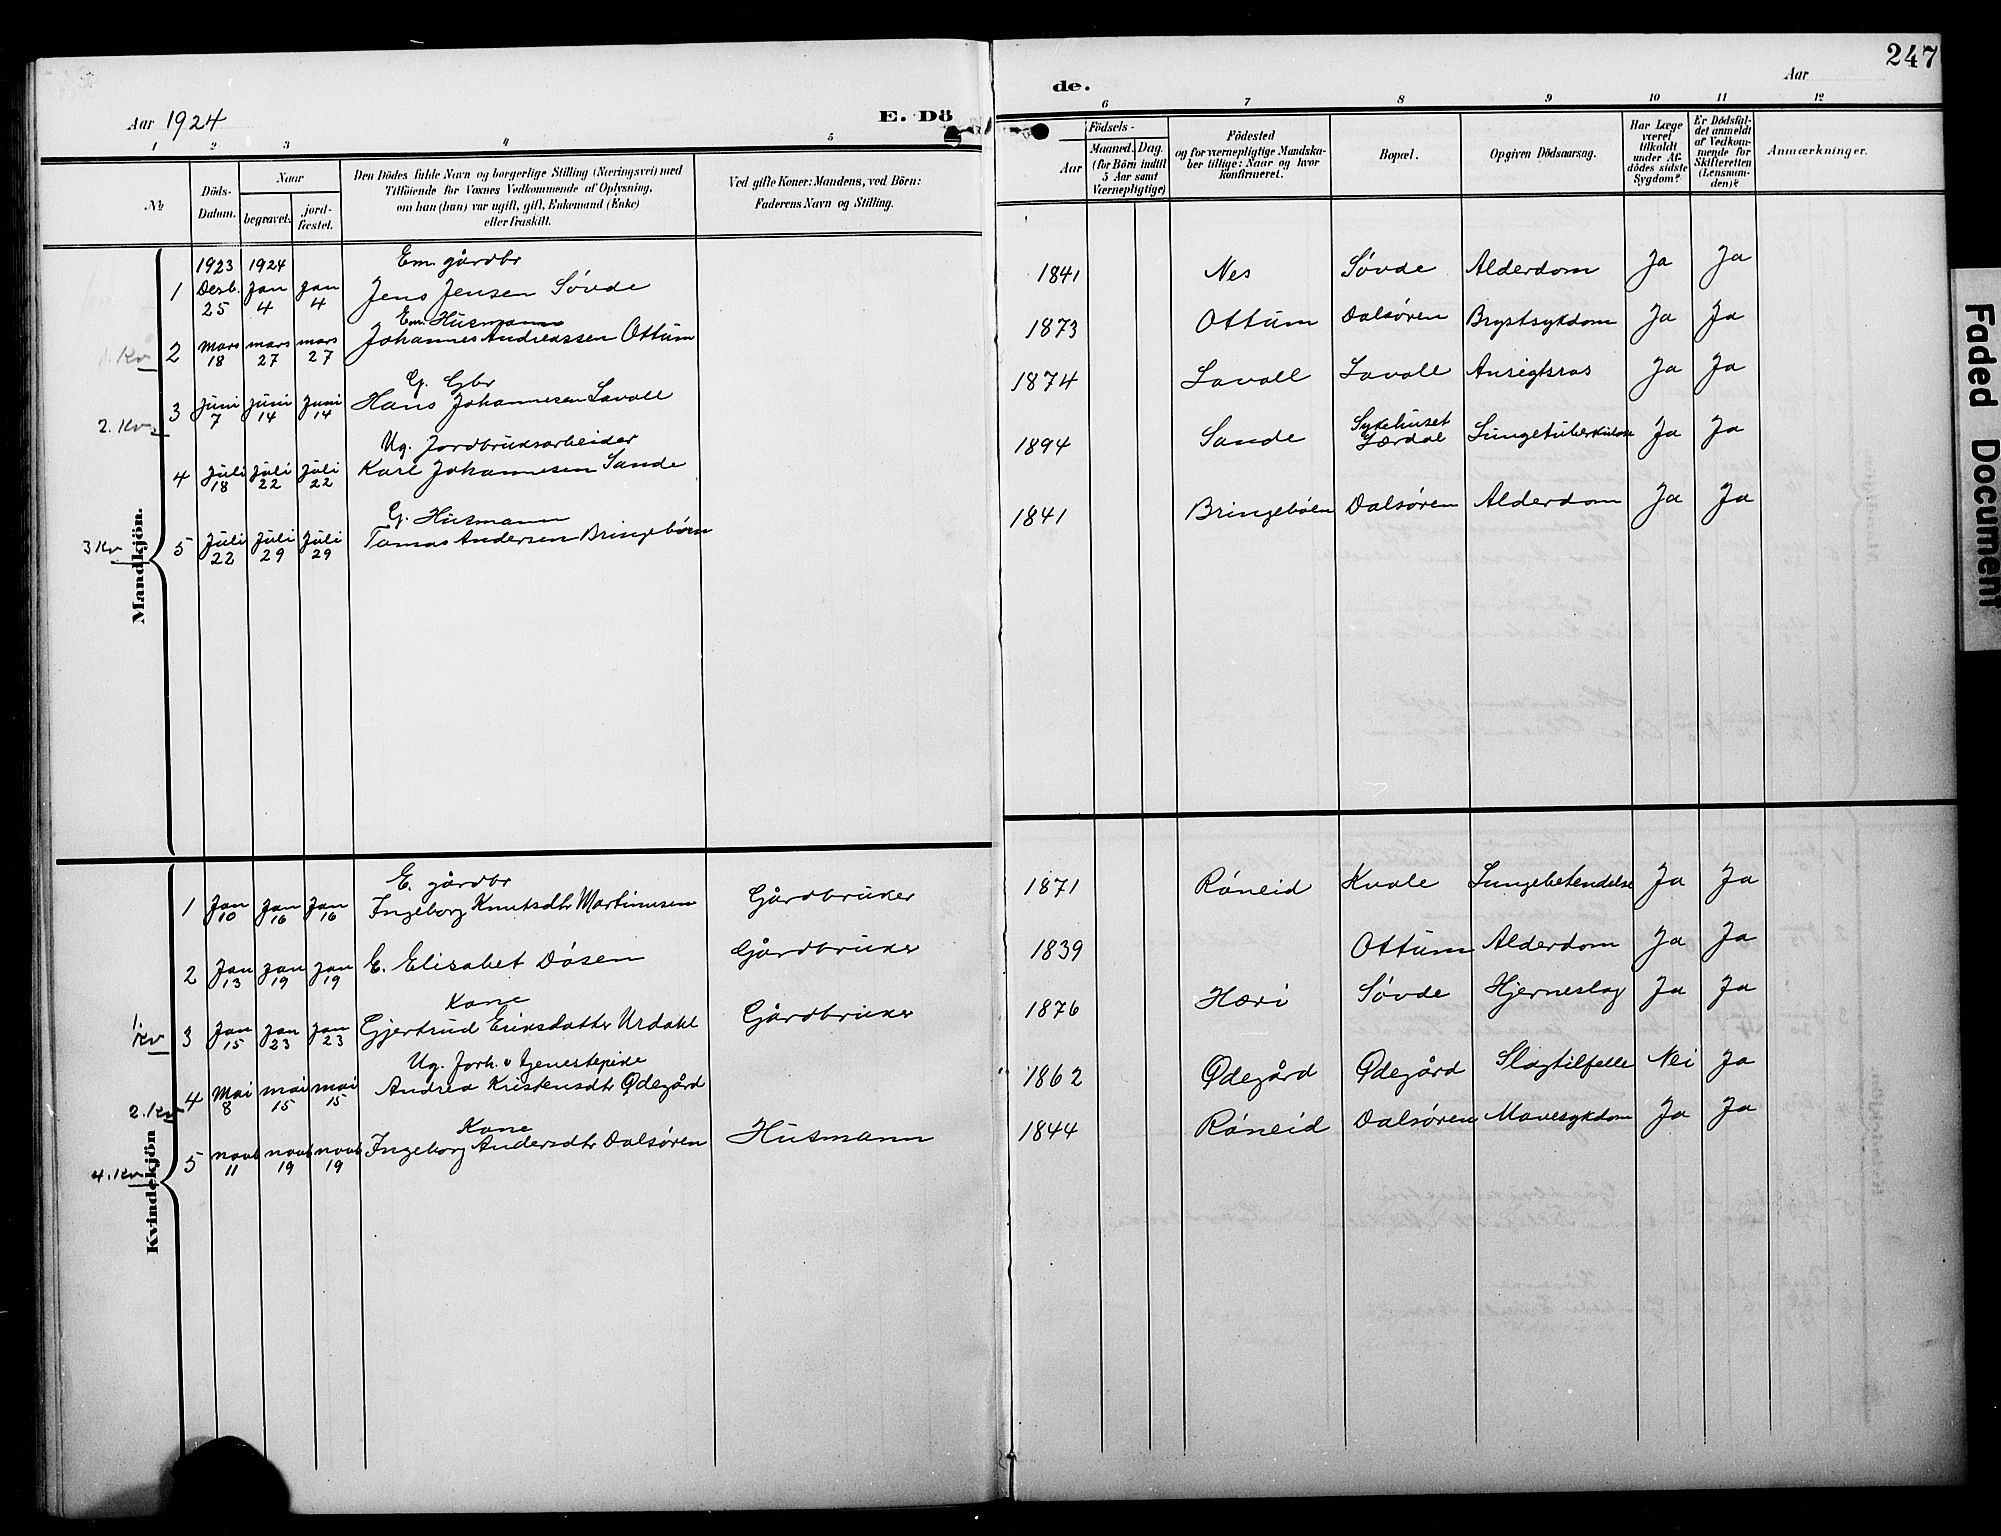 247
Aar 1924
E. Dö
de.
Aar
1 2 3 4 5 6 7 8 9 10 11 12
№
Döds-Datum.
Naar
begravet.
jord-fæstet.
Den Dödes fulde Navn og borgerlige Stilling (Næringsvei) med
Tilföiende for Voxnes Vedkommende af Oplysning,
om han (hun) var ugift, gift, Enkemand (Enke)
eller fraskilt.
Ved gifte Koner: Mandens, ved Börn:
Faderens Navn og Stilling.
Födsels-
Aar
Maaned. Dag.
(for Börn indtil
5 Aar samt
Værnepligtige)
Födested
og for værnepligtige Mandska-
ber tillige: Naar og hvor
konfirmeret.
Bopæl.
Opgiven Dödsaarsag.
Har Læge
været
tilkaldt
under Af-
dödes sidste
Sygdom?
Er Dödsfal-
det anmeldt
af Vedkom-
mende for
Skifteretten
(Lensman-
den)?
Anmærkninger.
Mandkjön.
1923 1924 Em. gårdbr
1 Desb. 25 Jan 4 Jan 4 Jens Jensen Søvde 1841 Nes Søvde Alderdom Ja Ja
Em. Husmann
1. Kv 2 Mars 18 mars 27 mars 27 Johannes Andreassen Ottum 1873 Ottum Dalsøren Brystsykdom Ja Ja
G. Gbr
2. Kv. 3 Juni 7 Juni 14 Juni 14 Hans Johannesen Lavoll 1874 Lavoll Lavoll Ansigtsros Ja Ja
Ug. Jordbruksarbeider
4 Juli 18 Juli 22 Juli 22 Karl Johannesen Sande 1894 Sande Sykehuset Lærdal Lungetuberkulose Ja Ja
G. Husmann
3 Kv 5 Juli 22 Juli 29 Juli 29 Tomas Andersen Bringebøen 1841 Bringebøen Dalsøren Alderdom Ja Ja
Kvindekjön
E. gårdbr
1 Jan 10 Jan 16 Jan 16 Ingeborg Knutsdtr Martinusen Gårdbruker 1871 Røneid Kvale Lungebetendelse Ja Ja
2 Jan 13 Jan 19 Jan 19 E. Elisabet Døsen Gårdbruker 1839 Ottum Alderdom Ja Ja
Kone
1. Kv 3 Jan 15 Jan 23 Jan 23 Gjertrud Eriksdatter Urdahl Gårdbruker 1876 Søvde Hjerneslag Ja Ja
Ug. Forh. v tjenestepike
2. Kv 4 Mai 8 mai 15 mai 15 Andrea Kristensdtr Ødegård 1862 Ødegård Ødegård Slagtilfelle Nei Ja
Kone
4. Kv 5 novb 11 novb 19 novb 19 Ingeborg Andersdtr Dalsøren Husmann 1844 Røneid Dalsøren Mavesykdom Ja Ja
Faded Document